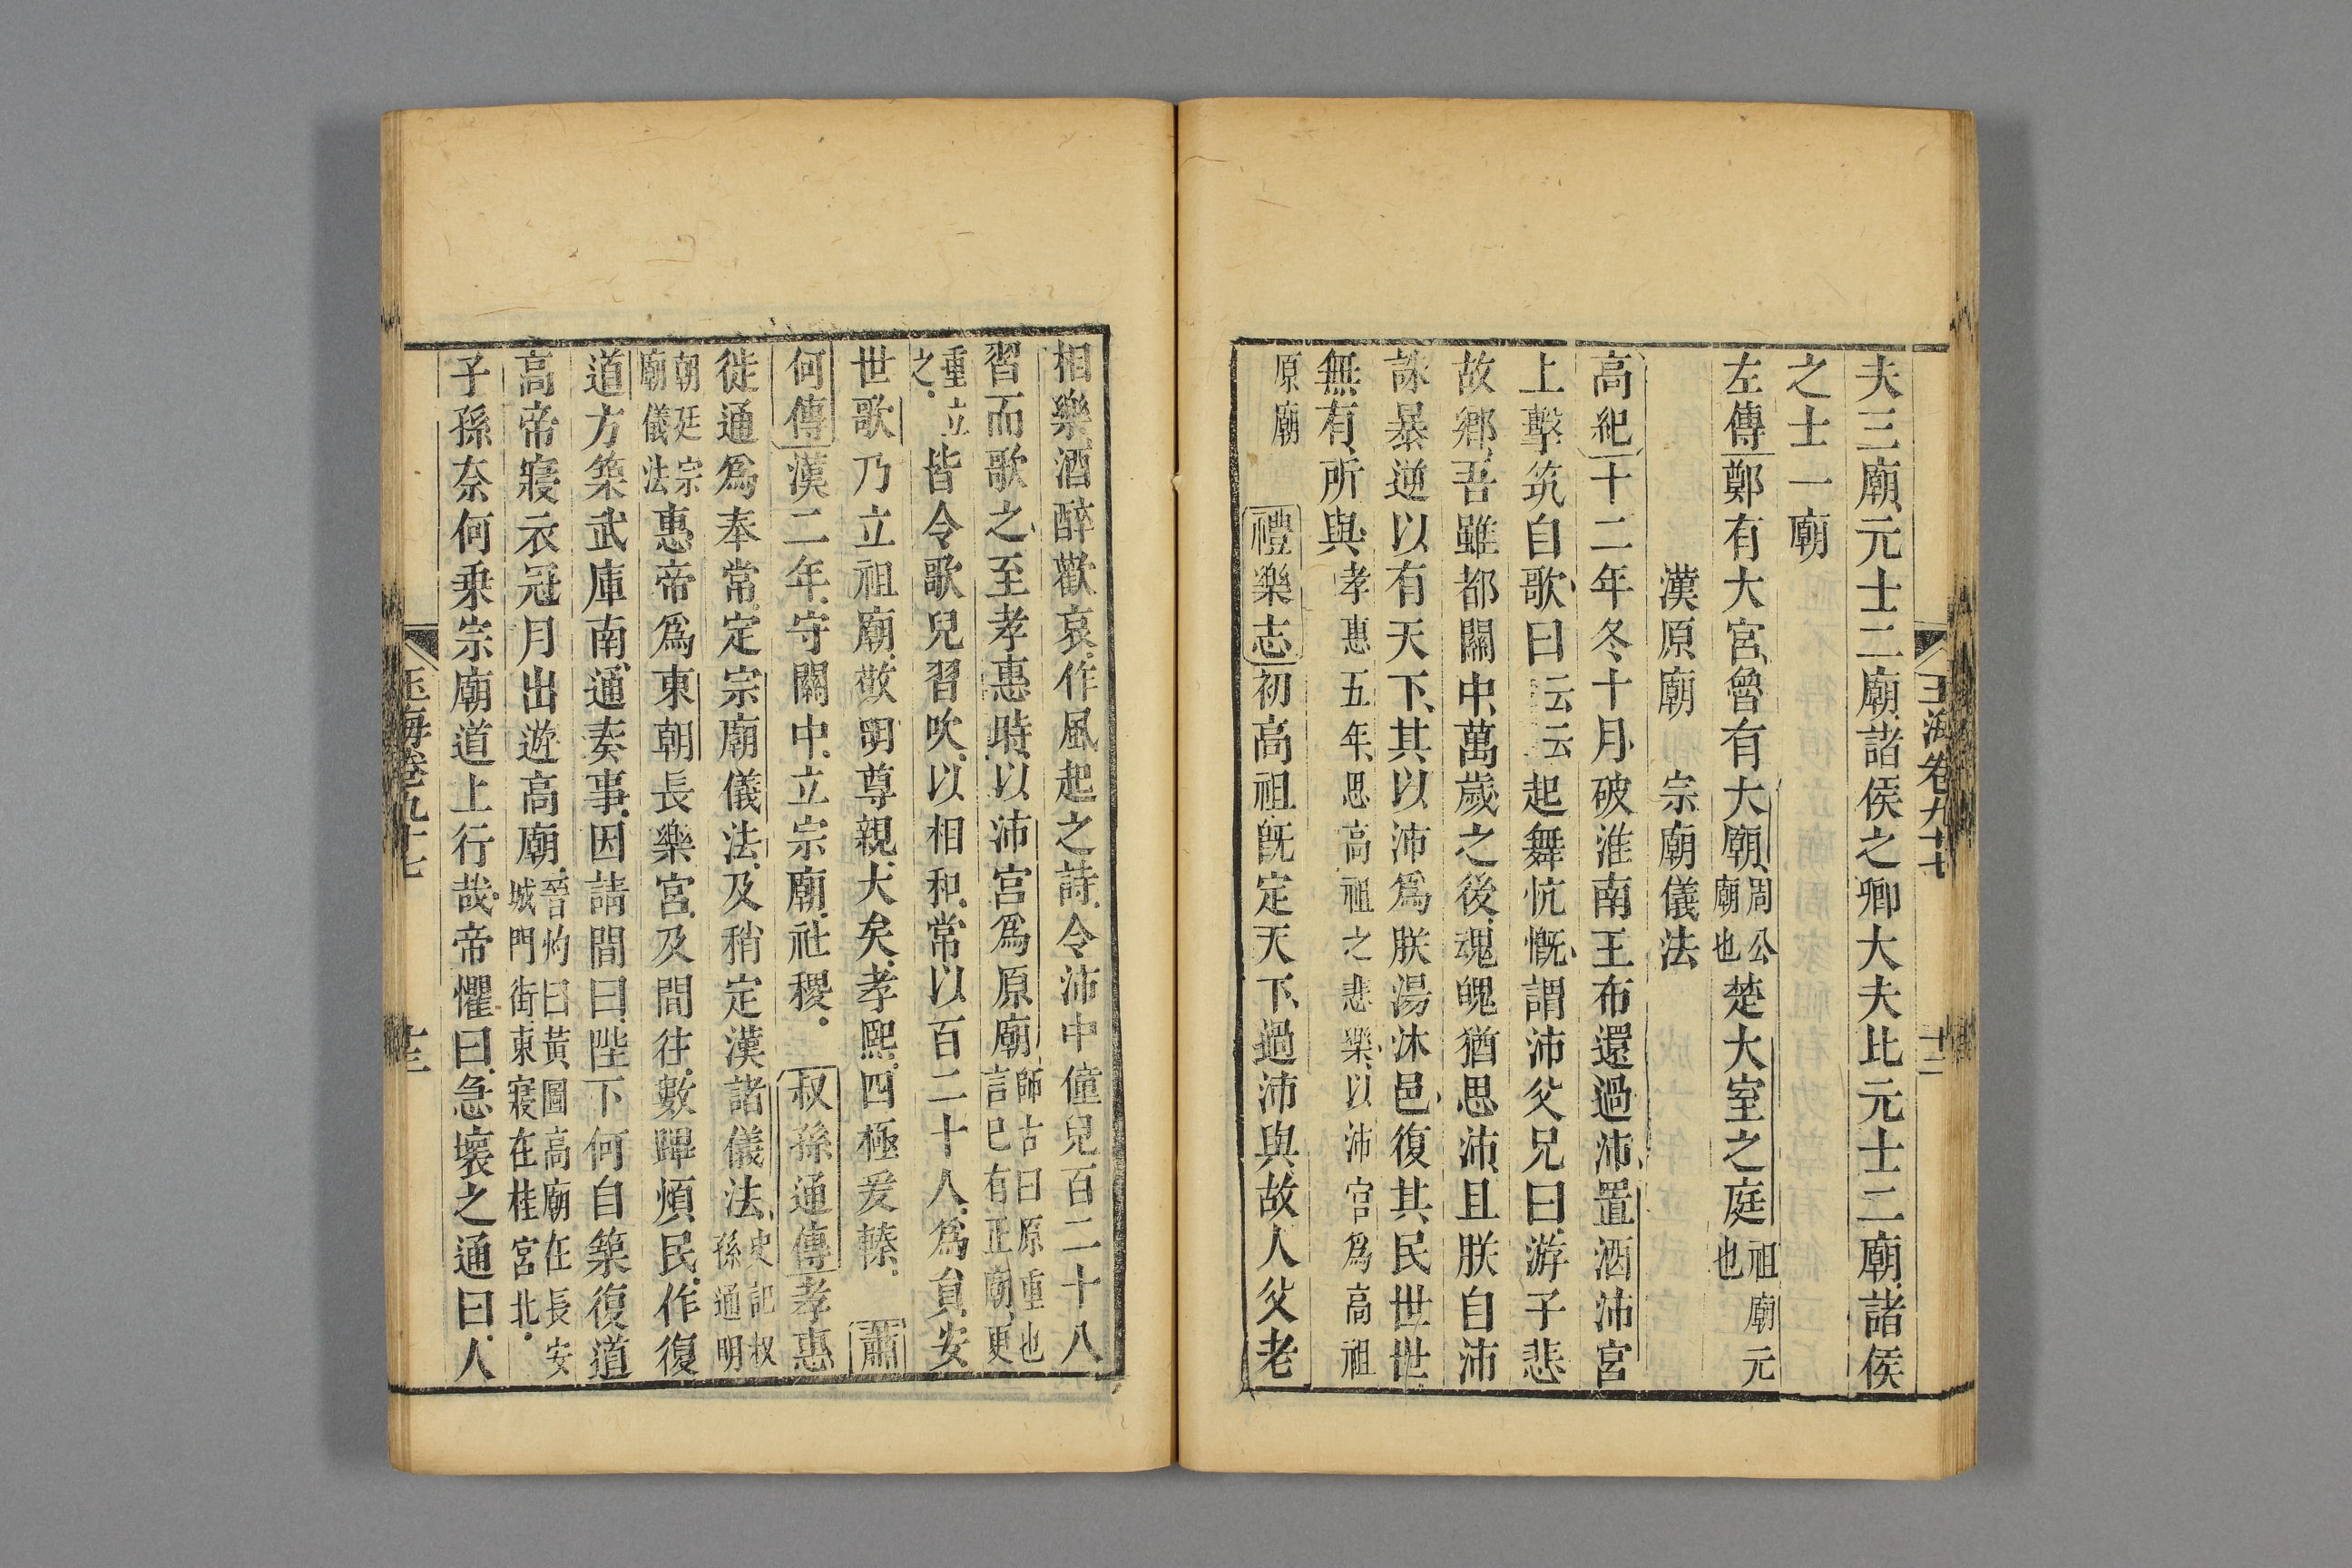 玉海卷九十七
十二
夫三廟元士二廟諸侯之卿大夫比元士二廟諸侯
之士一廟
左傳鄭有大宮魯有大廟周公廟也楚大室之庭祖廟元也
漢原廟 宗廟儀法
高紀十二年冬十月破淮南王布還過沛置酒沛宮
上擊筑自歌曰云云起舞忼慨謂沛父兄曰游子悲
故鄉吾雖都關中萬歲之後魂魄猶思沛且朕自沛
誅暴逆以有天下其以沛爲朕湯沐邑復其民世世
無有所與孝惠五年思高祖之悲樂以沛宮爲高祖
原廟 禮樂志初高祖旣定天下過沛與故人父老
相樂酒醉歡哀作風起之詩令沛中僮兒百二十八
習而歌之至孝惠時以沛宮爲原廟師古曰原重也言已有正廟更
重立之皆令歌兒習吹以相和常以百二十人爲員安
世歌乃立祖廟敬明尊親大矣孝熙四極爰轃 蕭
何傳漢二年守關中立宗廟社稷 叔孫通傳孝惠
徙通爲奉常定宗廟儀法及稍定漢諸儀法史記叔孫通明
朝廷宗廟儀法惠帝爲東朝長樂宮及間往數蹕煩民作復
道方築武庫南通奏事因請間曰陛下何自築復道
高帝寢衣冠月出遊高廟晉灼曰黃圖高廟在長安城門街東寢在桂宮北
子孫奈何乗宗廟道上行哉帝懼曰急壞之通曰人
玉海卷九十七
十三